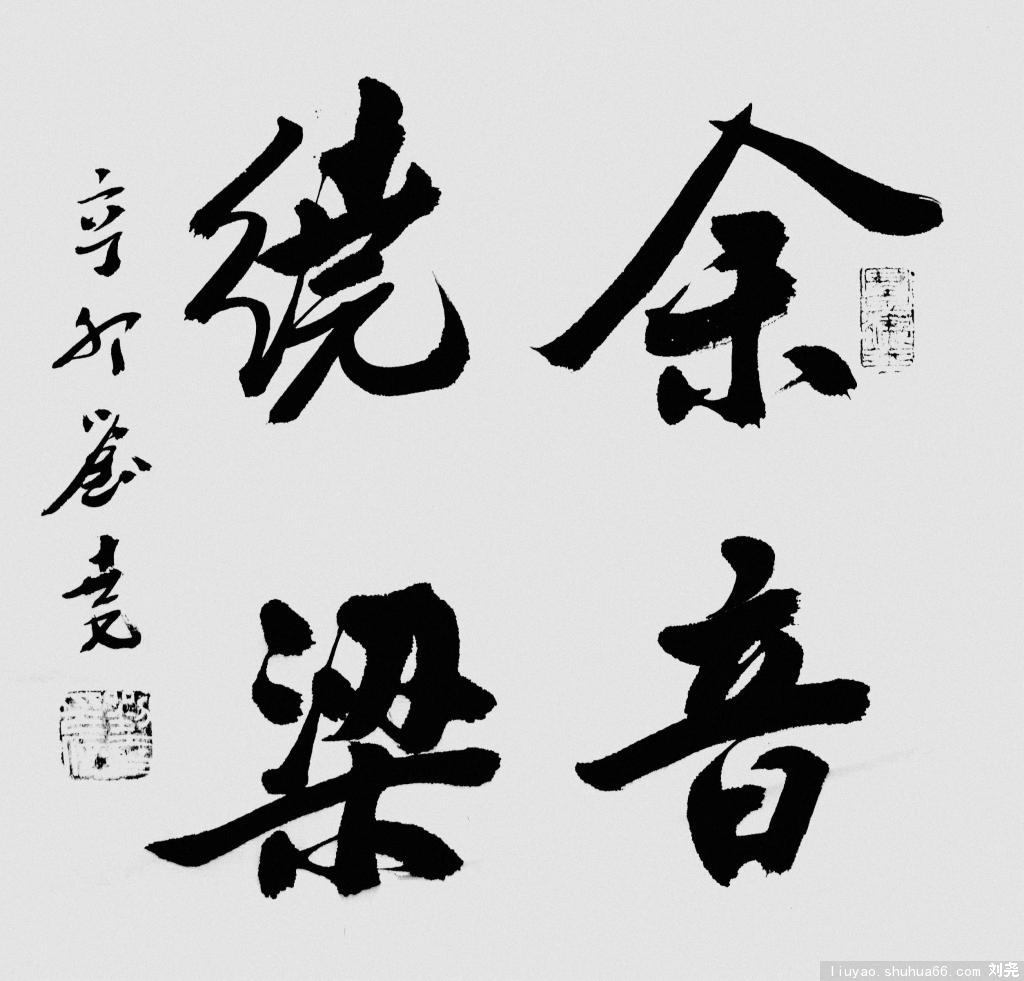 余音
绕梁
辛卯刘尧
liuyao.shuhua66.com 刘尧